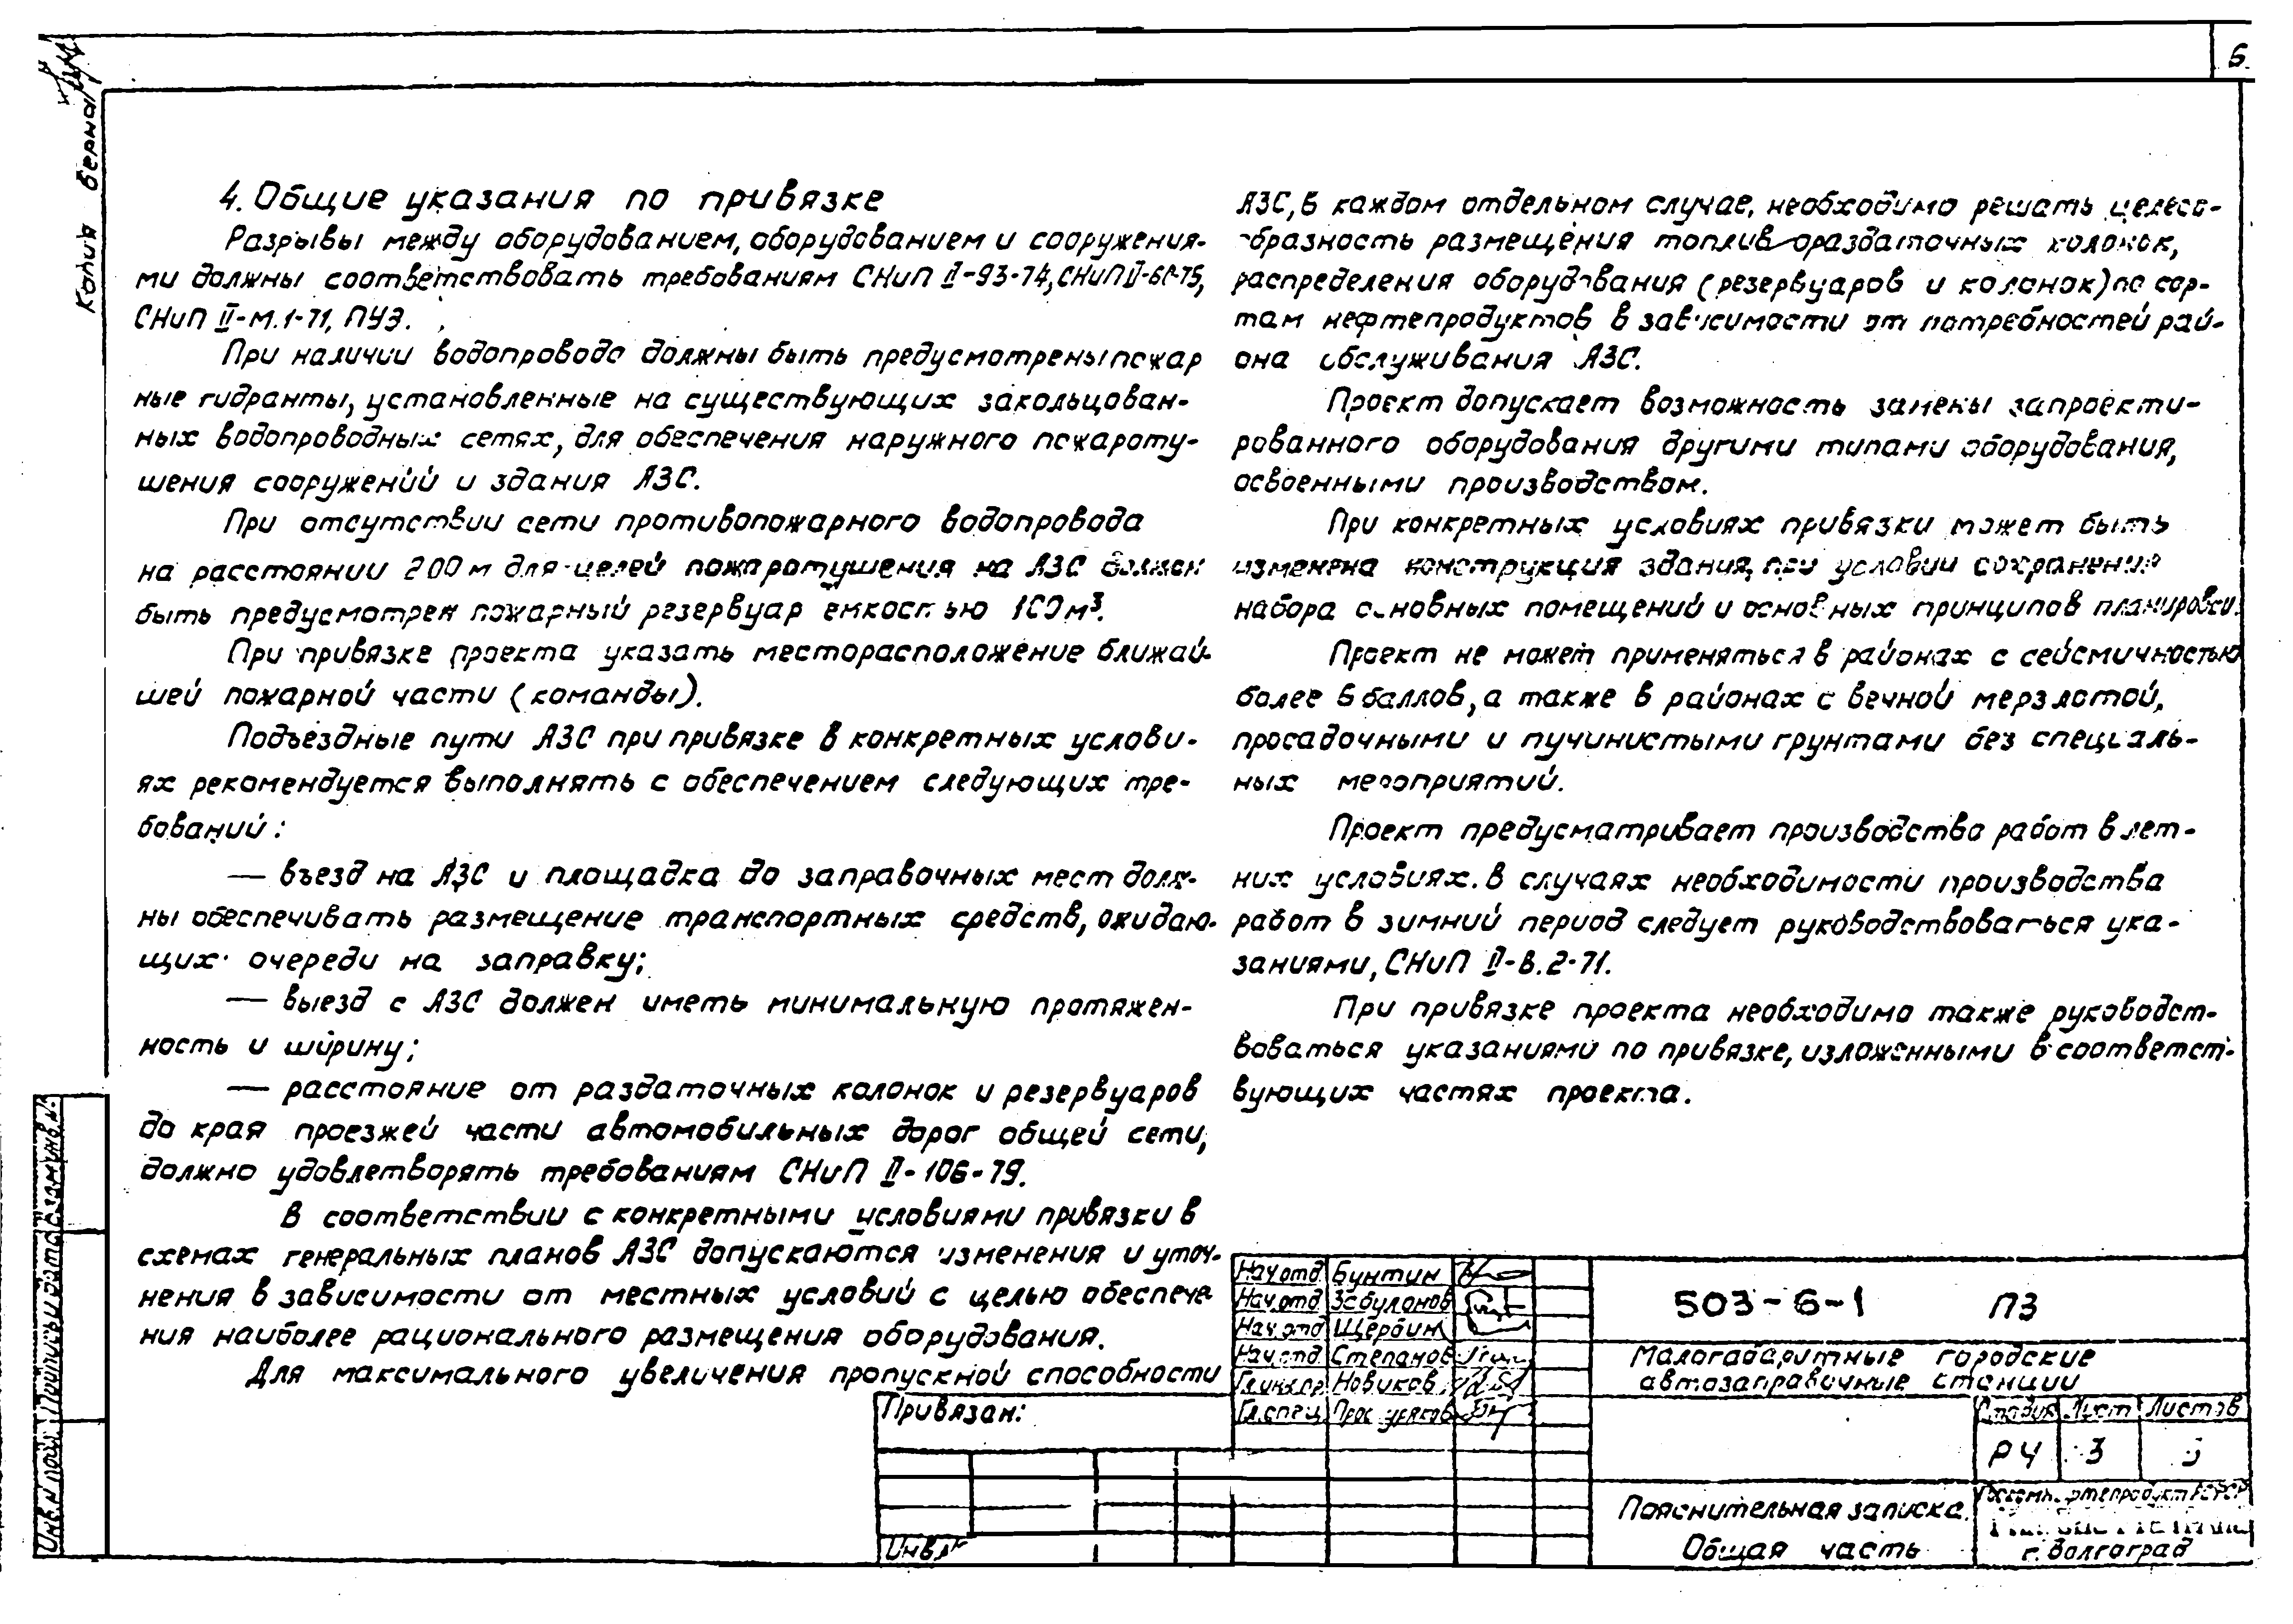 6
Копия верна
4. Общие указания по привязке
Разрывы между оборудованием, оборудованием и сооружения-
ми должны соответствовать требованиям СНиП II-93-74, СНиП II-60-75,
СНиП II-М.1-71, ПУЭ.
При наличии водопровода должны быть предусмотрены пожар
ные гидранты, установленные на существующих закольцован-
ных водопроводных сетях, для обеспечения наружного пожароту-
шения сооружений и здания АЗС.
При отсутствии сети противопожарного водопровода
на расстоянии 200 м для целей пожаротушения на АЗС должен
быть предусмотрен пожарный резервуар емкостью 100 м³.
При привязке проекта указать месторасположение ближай-
шей пожарной части (команды).
Подъездные пути АЗС при привязке в конкретных услови-
ях рекомендуется выполнять с обеспечением следующих тре-
бований:
— въезд на АЗС и площадка до заправочных мест долж-
ны обеспечивать размещение транспортных средств, ожидаю-
щих очереди на заправку;
— выезд с АЗС должен иметь минимальную протяжен-
ность и ширину;
— расстояние от раздаточных колонок и резервуаров
до края проезжей части автомобильных дорог общей сети,
должно удовлетворять требованиям СНиП II-106-79.
В соответствии с конкретными условиями привязки в
схемах генеральных планов АЗС допускаются изменения и уточ-
нения в зависимости от местных условий с целью обеспече-
ния наиболее рационального размещения оборудования.
Для максимального увеличения пропускной способности
АЗС, в каждом отдельном случае, необходимо решать целесо-
образность размещения топливораздаточных колонок,
распределения оборудования (резервуаров и колонок) по сор-
там нефтепродуктов в зависимости от потребностей рай-
она обслуживания АЗС.
Проект допускает возможность замены запроекти-
рованного оборудования другими типами оборудования,
освоенными производством.
При конкретных условиях привязки может быть
изменена конструкция здания, при условии сохранения
набора основных помещений и основных принципов планировки.
Проект не может применяться в районах с сейсмичностью
более 6 баллов, а также в районах с вечной мерзлотой,
просадочными и пучинистыми грунтами без специаль-
ных мероприятий.
Проект предусматривает производство работ в лет-
них условиях. В случаях необходимости производства
работ в зимний период следует руководствоваться ука-
заниями, СНиП II-В.2-71.
При привязке проекта необходимо также руководст-
воваться указаниями по привязке, изложенными в соответст-
вующих частях проекта.
Нач.отд Бунтин
Нач.отд Забулонов
Нач.отд Щербин
Нач.отд Степанов
Гл.инж.пр Новиков
Гл.спец
Привязан:
Инв.№
503-6-1 ПЗ
Малогабаритные городские
автозаправочные станции
Стадия Лист Листов
РЧ 3
Пояснительная записка.
Общая часть
г. Волгоград
Инв.№ подл. Подпись и дата Взам.инв.№